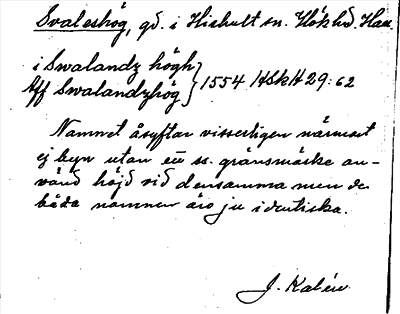 Svaleshög, gd. i Hishult sn. Höks hd. Hall
i Swalandz högh } 1554 HSkH 29:62
Aff Swalandzhög
Namnet åsyftar visserligen närmast
ej byn utan en ss. gränsmärke an-
vänd höjd vid densamma men de
båda namnen äro ju identiska.
J. Kalén